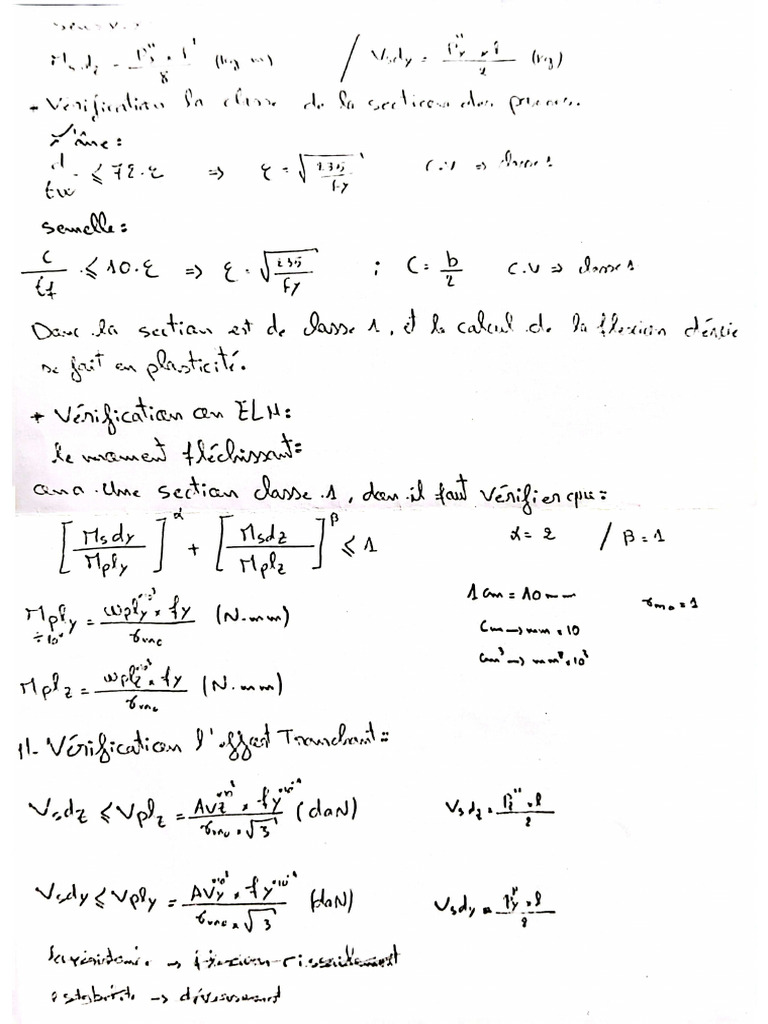 Msdz = Pz" × l² / 8 (kg m) / Vsdy = Py" × l / 2 (kg)
+ Vérification la classe de la section des pannes.
l'âme:
d / tw ≤ 72.ε => ε = √(235 / fy) C.V => classe 1
semelle:
c / tf ≤ 10.ε => ε = √(235 / fy) ; C = b / 2 C.V => classe 1
Donc la section est de classe 1, et le calcul de la flexion déviée
se fait en plasticité.
+ Vérification an ELU:
le moment fléchissant:
on a Une section classe 1, donc il faut vérifier que:
[Msdy / Mply]^α + [Msdz / Mplz]^β ≤ 1 α = 2 / β = 1
1 cm = 10 mm γm0 = 1
Mply = wply·10³ × fy / γm0 (N.mm) cm → mm × 10
cm³ → mm³ × 10³
Mplz = wplz·10³ × fy / γm0 (N.mm)
11- Vérification l'effort Tranchant:
Vsdz ≤ Vplz = AVz × fy / γm0 × √3 (daN) Vsdz = Pz" × l / 2
Vsdy ≤ Vply = AVy × fy / γm0 × √3 (daN) Vsdy = Py" × l / 2
La résistance → flexion cisaillement
stabilité → déversement